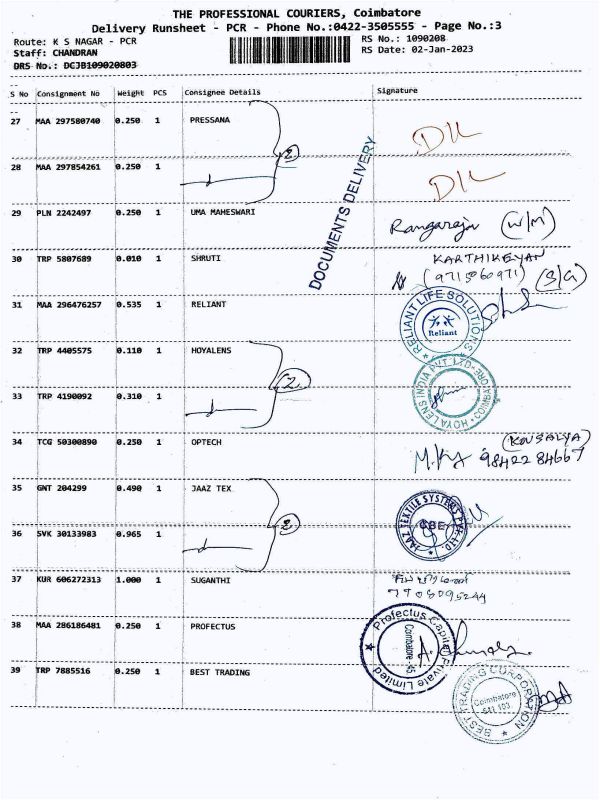 THE PROFESSIONAL COURIERS, Coimbatore
Delivery Runsheet - PCR - Phone No.:0422-3505555 - Page No.:3
Route: K S NAGAR - PCR RS No.: 1090208
Staff: CHANDRAN RS Date: 02-Jan-2023
DRS No.: DCJB109020803
S No Consignment No Weight PCS Consignee Details Signature
27 MAA 297580740 0.250 1 PRESSANA
2
28 MAA 297854261 0.250 1
DOCUMENTS DELIVERY
29 PLN 2242497 0.250 1 UMA MAHESWARI Rangaraja (W/M)
30 TRP 5807689 0.010 1 SHRUTI KARTHIKEYAN
(9715060971) (S/G)
31 MAA 296476257 0.535 1 RELIANT
RELIANT LIFE SOLUTIONS
Reliant
32 TRP 4405575 0.110 1 HOYALENS
2
HOYA LENS INDIA PVT. LTD. COIMBATORE
33 TRP 4190092 0.310 1
34 TCG 50300890 0.250 1 OPTECH (KOUSALYA)
9842284667
35 GNT 204299 0.490 1 JAAZ TEX
2
JAAZ TEXTILE SYSTEMS PVT. LTD.
CBE
36 SVK 30133983 0.965 1
37 KUR 606272313 1.000 1 SUGANTHI
7708095244
38 MAA 286186481 0.250 1 PROFECTUS
Profectus Capital Private Limited
Coimbatore -45
39 TRP 7885516 0.250 1 BEST TRADING
BEST TRADING CORPORATION
Coimbatore
641 103